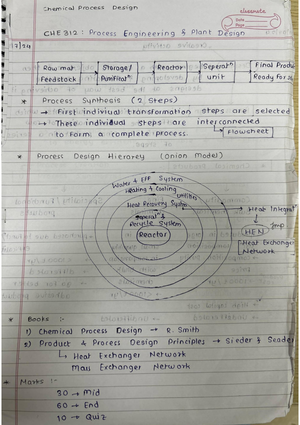 Chemical Process Design
classmate
Date
Page
CHE 312 : Process Engineering & Plant Design
Raw mat.
Feedstock
Storage/
Reactor
unit
Final Produ
Ready For
* Process Synthesis (2 Steps)
→ First individual transformation steps are selected
→ These individual steps are interconnected
to form a complete process.
Flowsheet
* Process Design Hierarey (Onion Model)
Water & Eff System
Heating & Cooling
Utilities
Heat Recovery System
Recycle System
Reactor
→ Heat Integrat
Imp
HEN
Heat Exchanger
Network
* Books :-
1) Chemical Process Design → R. Smith
2) Product & Process Design Principles → Sieder & Seader
↳ Heat Exchanger Network
Mass Exchanger Network
* Marks :-
30 → Mid
60 → End
10 → Quiz